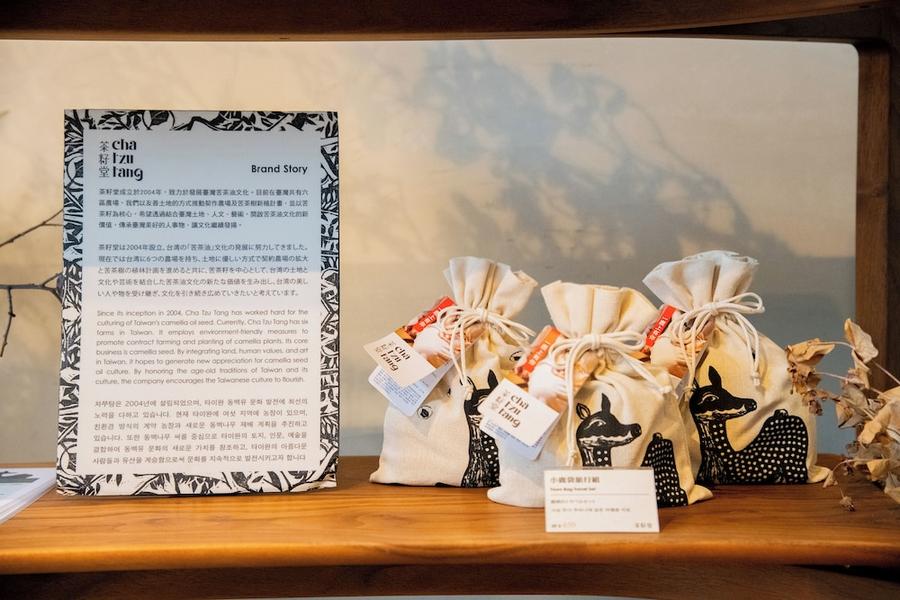 茶籽堂
cha
tzu
tang
Brand Story
茶籽堂成立於2004年，致力於發展臺灣苦茶油文化。目前在臺灣共有六
區農場，我們以友善土地的方式推動契作農場及苦茶樹新植計畫，並以苦
茶籽為核心，希望透過結合臺灣土地、人文、藝術，開啟苦茶油文化的新
價值，傳承臺灣美好的人事物，讓文化繼續發揚。
茶籽堂は2004年設立。台湾の「苦茶油」文化の発展に努力してきました。
現在では台湾に6つの農場を持ち、土地に優しい方式で契約農場の拡大
と苦茶樹の植林計画を進めると共に、苦茶籽を中心として、台湾の土地と
文化や芸術を結合した苦茶油文化の新たな価値を生み出し、台湾の美し
い人や物を受け継ぎ、文化を引き続き広めていきたいと考えています。
Since its inception in 2004, Cha Tzu Tang has worked hard for the
culturing of Taiwan's camellia oil seed. Currently, Cha Tzu Tang has six
farms in Taiwan. It employs environment-friendly measures to
promote contract farming and planting of camellia plants. Its core
business is camellia seed. By integrating land, human values, and art
in Taiwan, it hopes to generate new appreciation for camellia seed
oil culture. By honoring the age-old traditions of Taiwan and its
culture, the company encourages the Taiwanese culture to flourish.
차쭈탕은 2004년에 설립되었으며, 타이완 동백유 문화 발전에 최선의
노력을 다하고 있습니다. 현재 타이완에 여섯 지역에 농장이 있으며,
친환경 방식의 계약 농장과 새로운 동백나무 재배 계획을 추진하고
있습니다. 또한 동백나무 씨를 중심으로 타이완의 토지, 인문, 예술을
결합하여 동백유 문화의 새로운 가치를 창조하고, 타이완의 아름다운
사람들과 유산을 계승함으로써 문화를 지속적으로 발전시키고자 합니다
cha
tzu
tang
cha
tzu
tang
小鹿袋旅行組
Travel Set